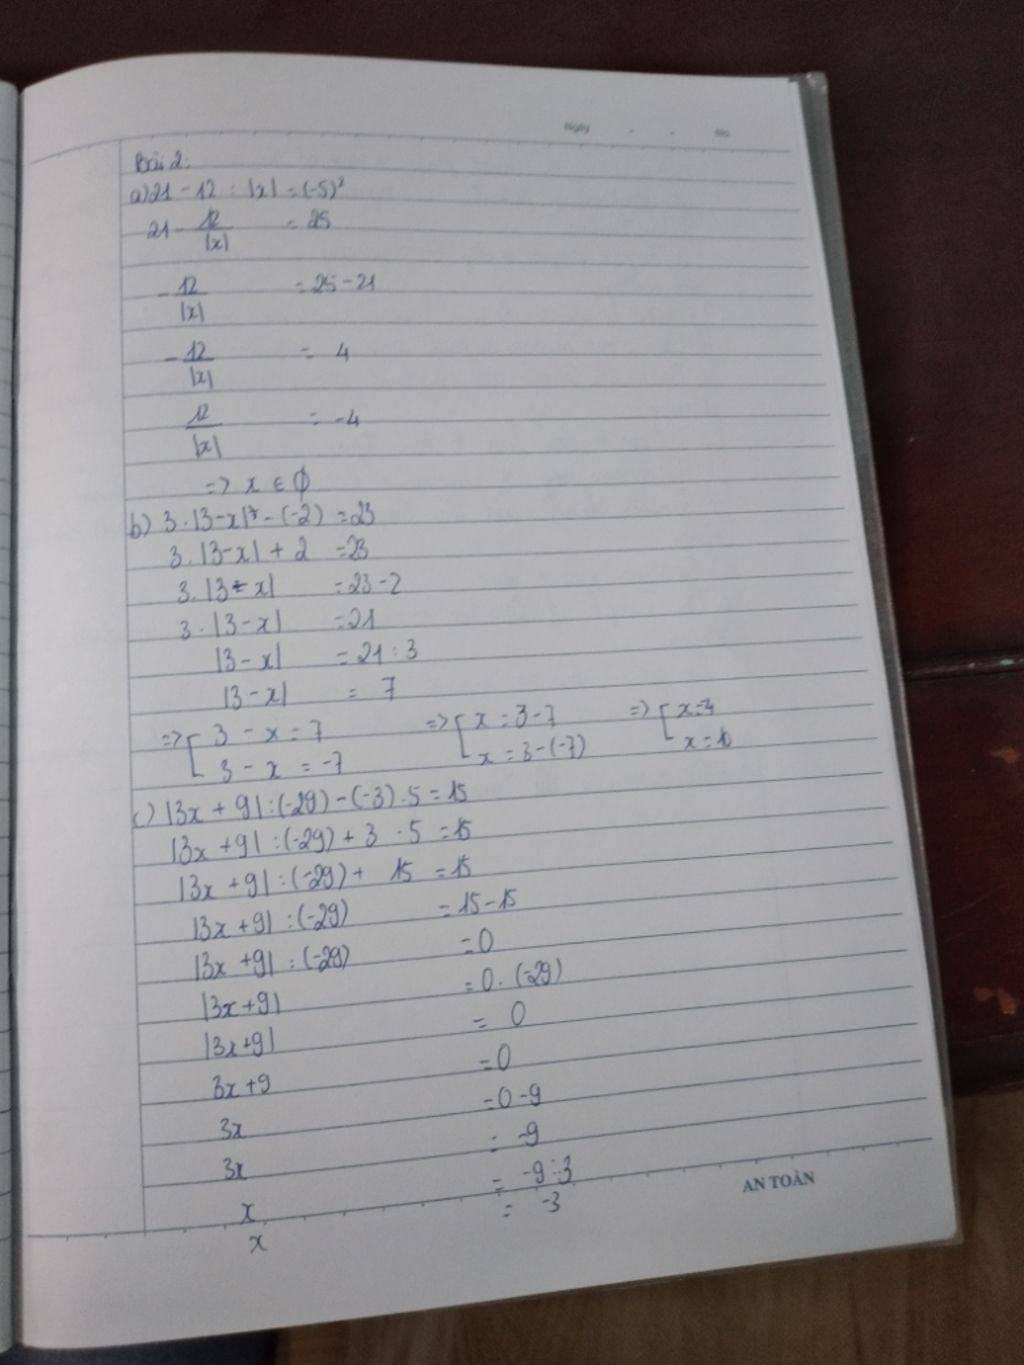 Ngày . . No.
Bài 2:
a) 21 - 12 : |x| = (-5)²
21 - 12/|x| = 25
- 12/|x| = 25 - 21
- 12/|x| = 4
12/|x| = -4
=> x ∈ ∅
b) 3 . |3 - x| - (-2) = 23
3 . |3 - x| + 2 = 23
3 . |3 - x| = 23 - 2
3 . |3 - x| = 21
|3 - x| = 21 : 3
|3 - x| = 7
=> [ 3 - x = 7 => [ x = 3 - 7 => [ x =
3 - x = -7 x = 3 - (-7) x = 10
c) |3x + 9| : (-29) - (-3) . 5 = 15
|3x + 9| : (-29) + 3 . 5 = 15
|3x + 9| : (-29) + 15 = 15
|3x + 9| : (-29) = 15 - 15
|3x + 9| : (-29) = 0
|3x + 9| = 0 . (-29)
|3x + 9| = 0
3x + 9 = 0
3x = 0 - 9
3x = -9
x = -9 : 3
x = -3
AN TOÀN